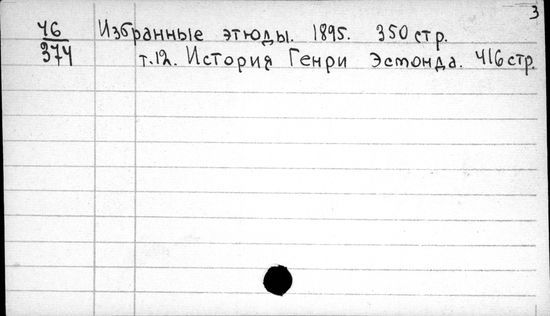 3
46 Избранные этюды. 1895. 350 стр.
374 т.12. История Генри Эсмонда. 416 стр.